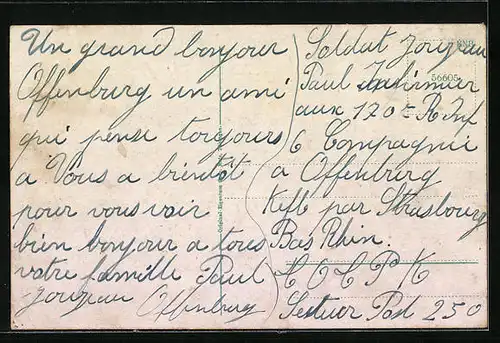 Un grand bonjour
Offenburg un ami
qui pense toujours
a Vous a bientôt
pour vous voir
bien bonjour a tous
votre famille Paul
Jouzeau Offenburg
Soldat Jouzeau
56605
Paul infirmier
aux 170e R Inf
6 Compagnie
a Offenburg
Kehl par Strasbourg
Bas Rhin.
C O C P K
Secteur Post 250